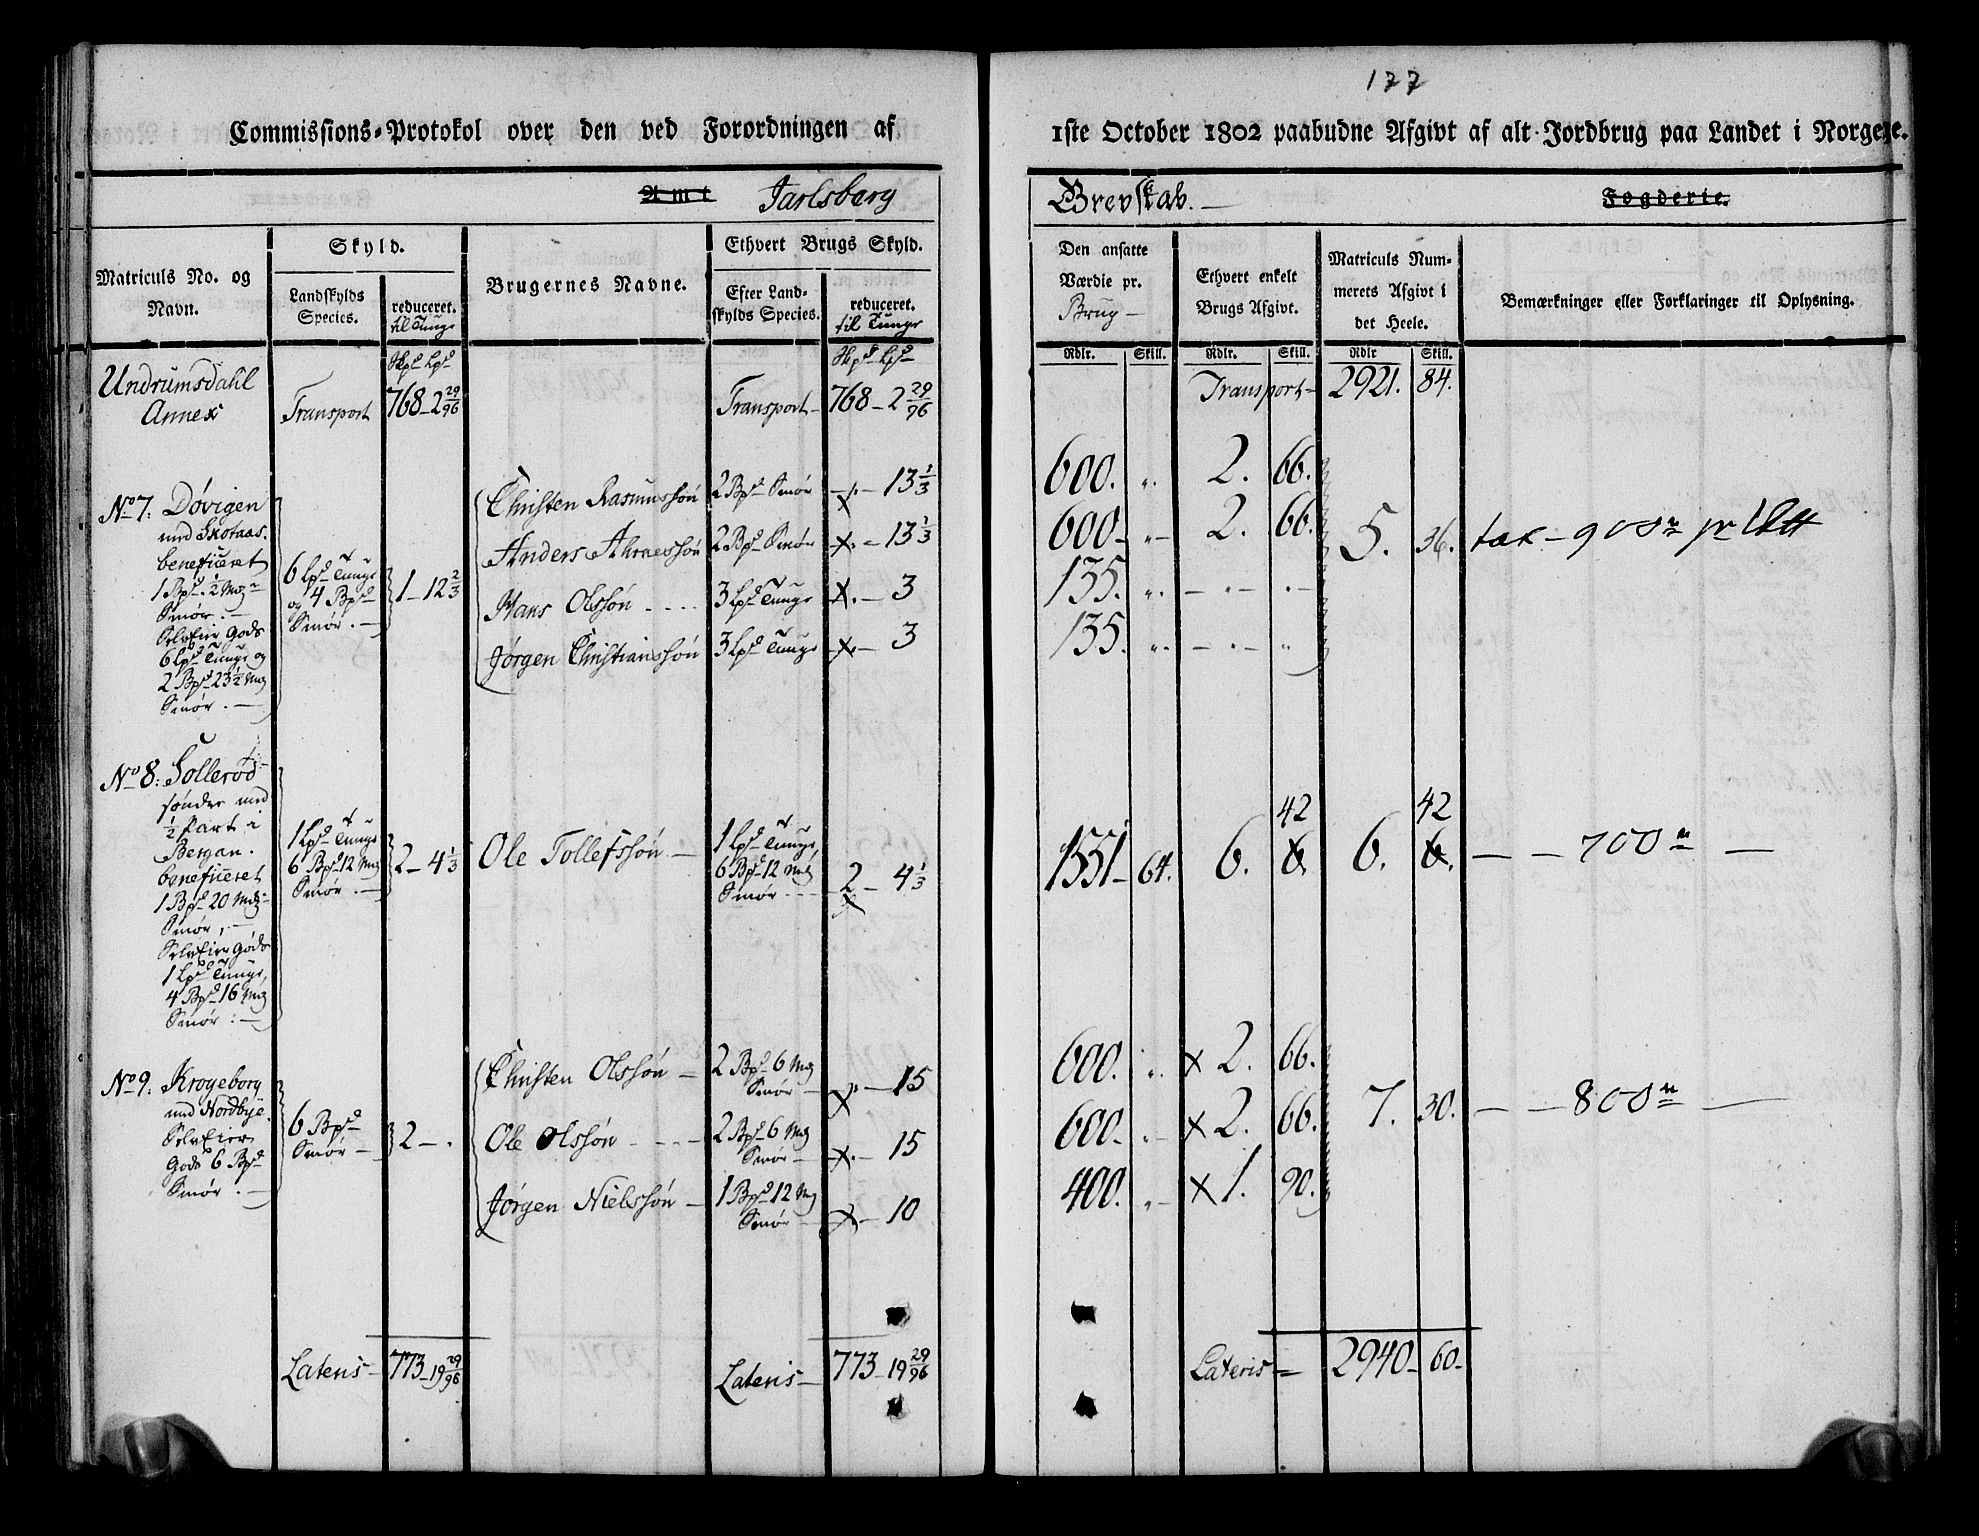 177
Commissions-Protokol over den ved Forordningen af
1ste October 1802 paabudne Afgivt af alt Jordbrug paa Landet i Norge.
Amt Jarlsberg
Grevskab. Fogderie.
Matriculs No. og
Navn.
Skyld.
Landskylds
Species.
reduceret.
til Tunge
Brugernes Navne.
Ethvert Brugs Skyld.
Efter Land-
skylds Species.
reduceret.
til Tunge
Den ansatte
Værdie pr.
Brug
Ethvert enkelt
Brugs Afgivt.
Matriculs Num-
merets Afgivt i
det Heele.
Bemærkninger eller Forklaringer til Oplysning.
Rdlr. Skill. Rdlr. Skill. Rdlr Skill.
Undrumsdahl
Annex
Transport
Skpd Lpd
768 - 2 29/96
Transport
Skpd Lpd
768 - 2 29/96
Transport - 2921. 84.
No 7. Døvigen
med Skotaas.
beneficeret
1 Bpd. 1/2 Mg
Smør. -
SelvEier Gods
6 Lpd Tunge og
2 Bpd 23 1/2 Mg
Smør. -
6 Lpd Tunge
og 4 Bpd
Smør. -
1 - 12 2/3
Christen Rasmussøn 2 Bpd Smør - 13 1/3 600. „ 2. 66.
Anders Abraessøn 2 Bpd Smør - 13 1/3 600 - „ 2. 66.
Hans Olssøn 3 Lpd Tunge - 3 135. „
Jørgen Christianssøn 3 Lpd Tunge - 3 135. „
5. 36. tax - 900
No 8. Sollerød
søndre med
1/2 Part i
Bergan.
beneficeret
1 Bpd 20 Mg
Smør, -
SelvEier Gods
1 Lpd Tunge,
4 Bpd 16 Mg
Smør. -
1 Lpd Tunge
6 Bpd 12 Mg
Smør. -
2 - 4 1/3
Ole Tollefssøn -
1 Lpd Tunge,
6 Bpd 12 Mg
Smør
2 - 4 1/3
1551 - 64. 6. 6. 42 6. 6. 42 - - 700 -
No 9. Krogeborg
med Nordbye.
SelvEier
Gods 6 Bpd
Smør. -
6 Bpd
Smør -
2 - .
Christen Olssøn - 2 Bpd 6 Mg
Smør - 15 600. „ × 2. 66.
Ole Olssøn 2 Bpd 6 Mg
Smør - 15 600 - „ × 2. 66.
Jørgen Nielssøn - 1 Bpd 12 Mg
Smør - 10 400. „ × 1. 90.
7. 30. - - 800 -
Lateris - 773 - 19 29/96
Lateris - 773 - 19 29/96
Lateris - 2940 - 60 -